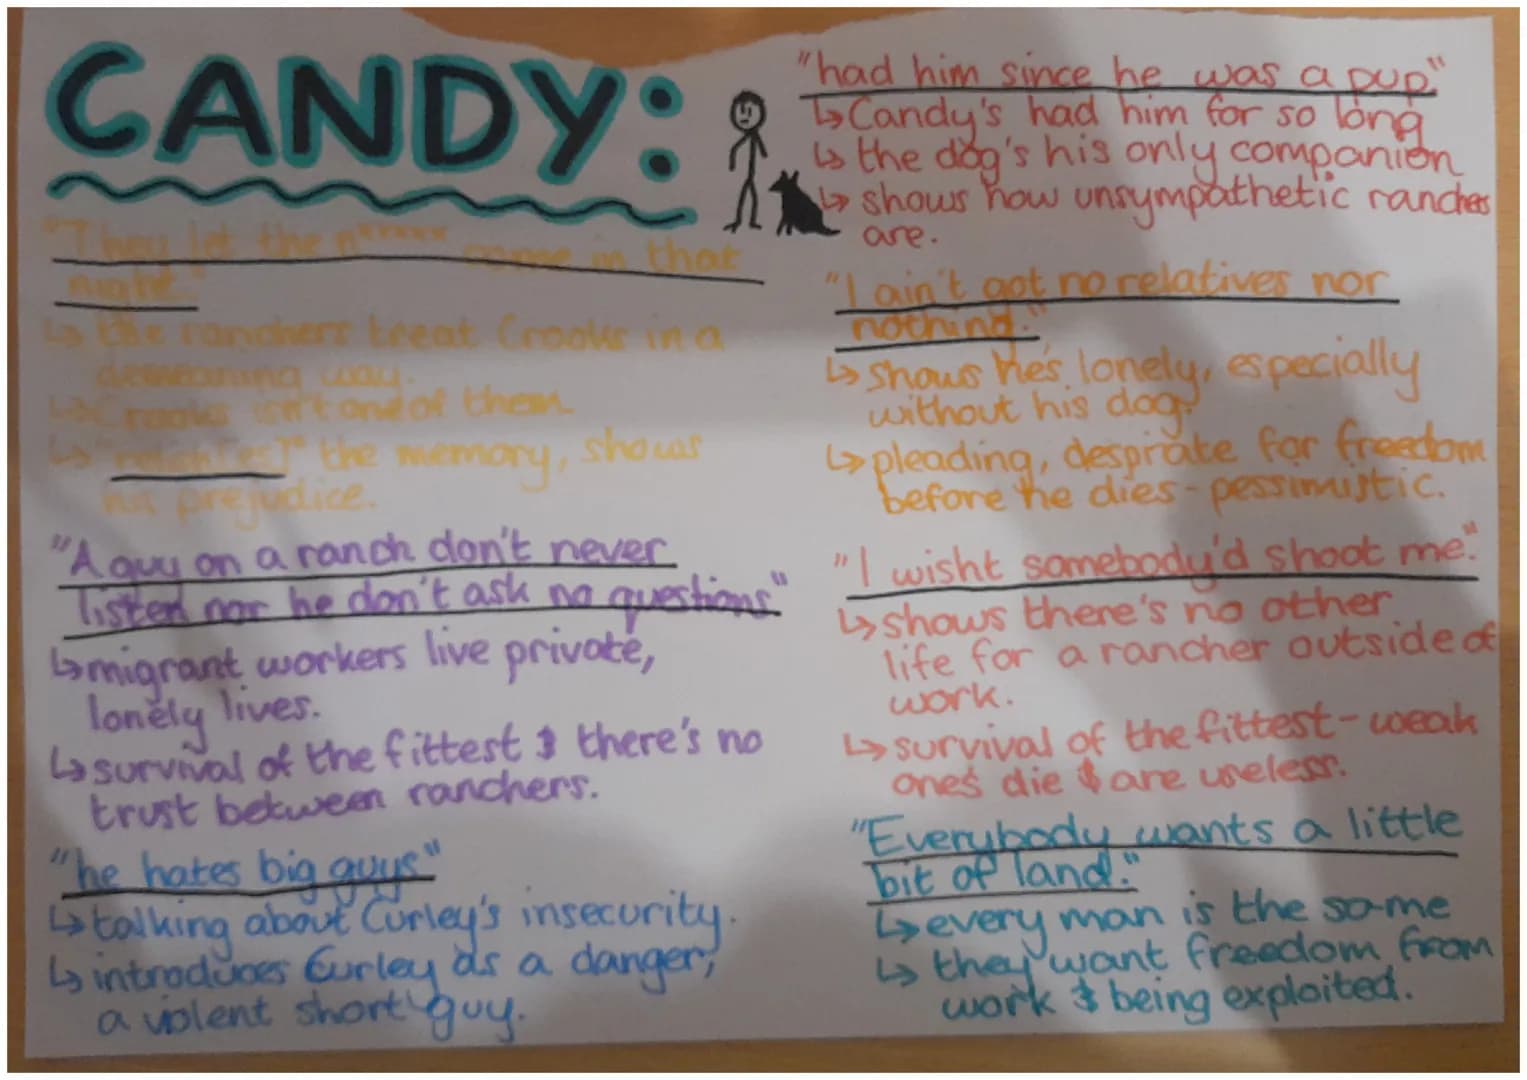 CANDY:
"They let the n***** come in that
night."
↳ the ranchers treat Crooks in a
demeaning way.
↳ Crooks isn't one of them.
↳ "relish[es]" the memory, shows
his prejudice.
"A guy on a ranch don't never
listen nor he don't ask no questions"
↳ migrant workers live private,
lonely lives.
↳ survival of the fittest & there's no
trust between ranchers.
"he hates big guys"
↳ talking about Curley's insecurity.
↳ introduces Curley as a danger,
a violent short guy.
"had him since he was a pup"
↳ Candy's had him for so long
↳ the dog's his only companion
↳ shows how unsympathetic ranchers
are.
"I ain't got no relatives nor
nothing."
↳ shows he's lonely, especially
without his dog.
↳ pleading, desprate for freedom
before he dies - pessimistic.
"I wisht somebody'd shoot me."
↳ shows there's no other
life for a rancher outside of
work.
↳ survival of the fittest - weak
ones die & are useless.
"Everybody wants a little
bit of land."
↳ every man is the same
↳ they want freedom from
work & being exploited.